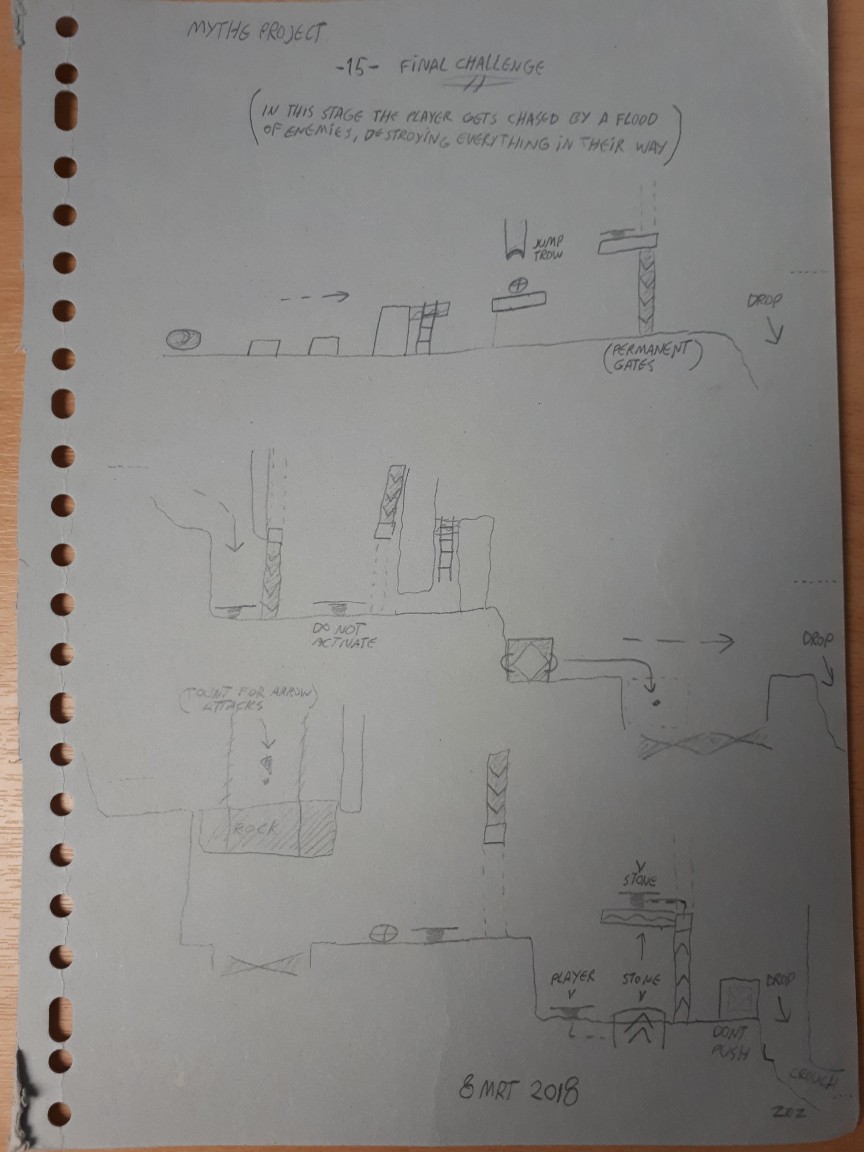 MYTHE PROJECT
-15- FINAL CHALLENGE
(IN THIS STAGE THE PLAYER GETS CHASED BY A FLOOD
OF ENEMIES, DESTROYING EVERYTHING IN THEIR WAY)
JUMP
TROW
DROP
(PERMANENT
GATES)
DO NOT
ACTIVATE
DROP
(COUNT FOR ARROW)
ATTACKS
ROCK
STONE
PLAYER
STONE
DROP
DONT
PUSH
CROUCH
8 MRT 2018